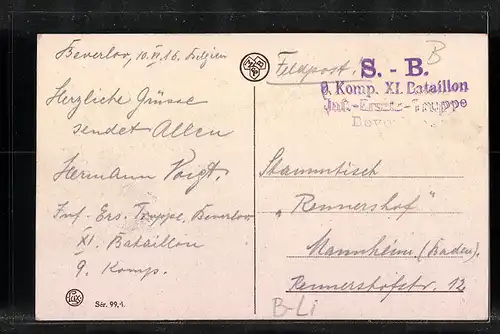 Beverloo, 10. VI. 16. Belgien
Herzliche Grüsse
sendet Allen
Hermann Voigt.
Inf. Ers. Truppe, Beverloo
XI. Bataillon
9. Komp.
Lux
Sér. 99,1.
Feldpost.
S. - B.
9. Komp. XI. Bataillon
Inf.-Ersatz-Truppe
B
Stammtisch
„Rennershof"
Mannheim (Baden).
Rennershofstr. 12
B-Li